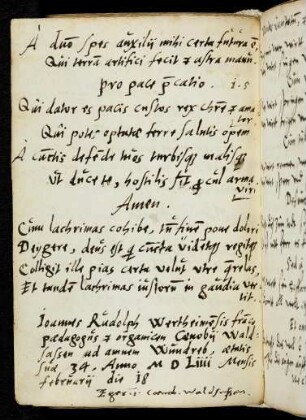 A duo spes auxilij mihi certa futura ē,
Qui terrā artifici fecit z astra manu.
pro pace p̄catio. 1.5
Qui dator es pacis custos rex chrē z ama
tor
Qui potes optatae terre salutis opem
A cunctis defēde tuos turbisq malisq
Ut duce te, hostilis sit procul arma
viri
Amen.
Cum lachrimas cohibe, finem pone dolori
Deygere, deus est q cuncta videtque regitque
Colligit ille pias certa velut utre querelas,
Et tandem lachrimas iustorum in gaudia ver
tit.
Ioannes Rudolph Wertheimensis franc
paedagogus z organicen Coenobij Wald-
sassen ad amnem Wundreb, aetatis
suae 34. Anno M D Liiii Mensis
februarij die 18